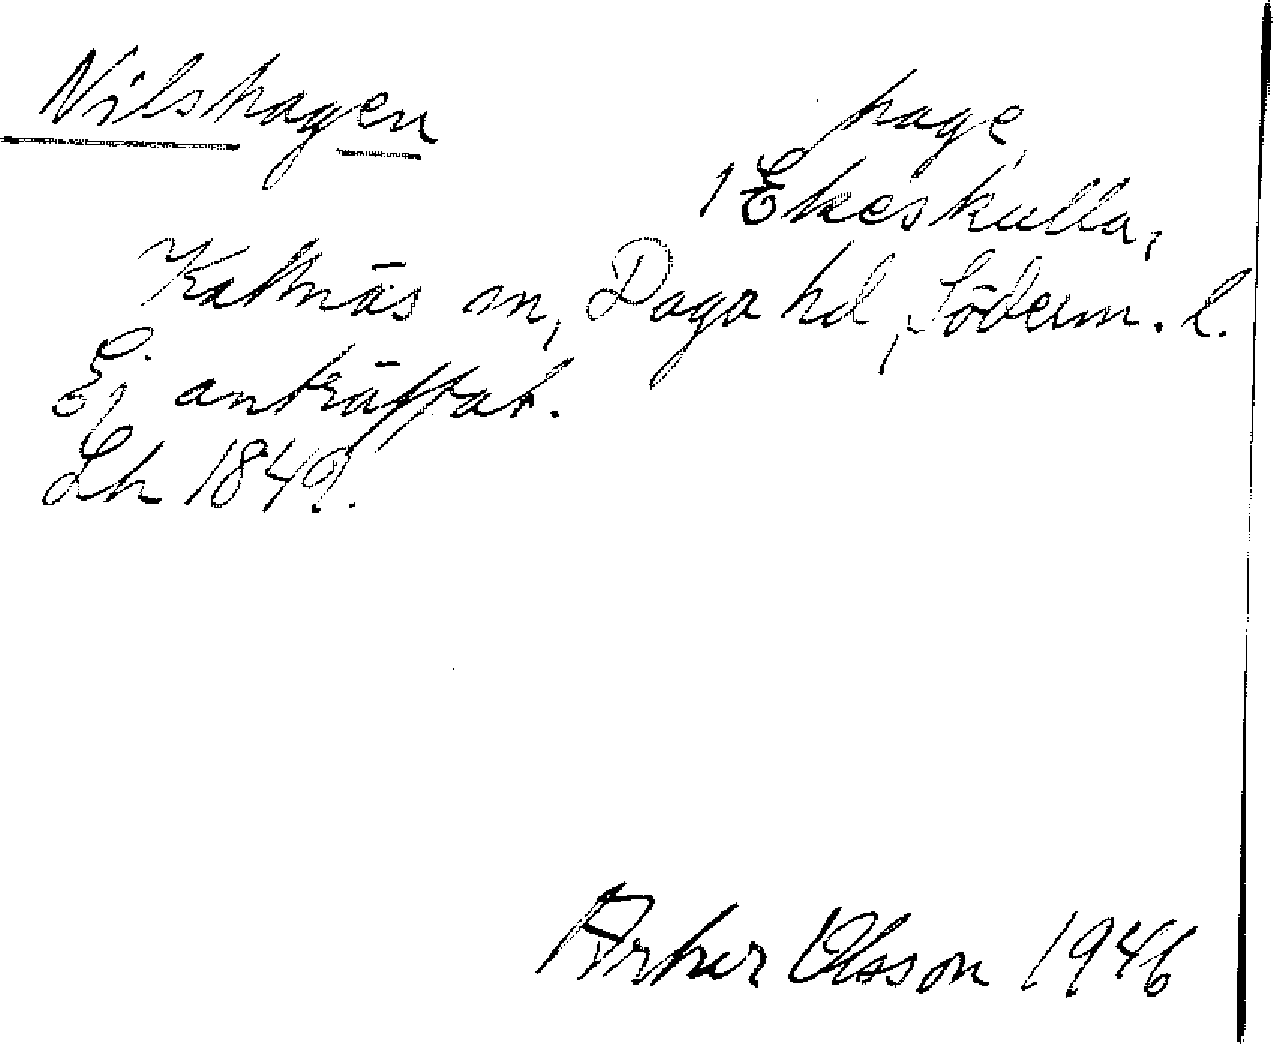 Nilshagen
hage,
1 Ekeskulla,
Kattnäs sn, Daga hd, Söderm. l.
Ej anträffat.
Lh 1849.
Arthur Olsson 1946